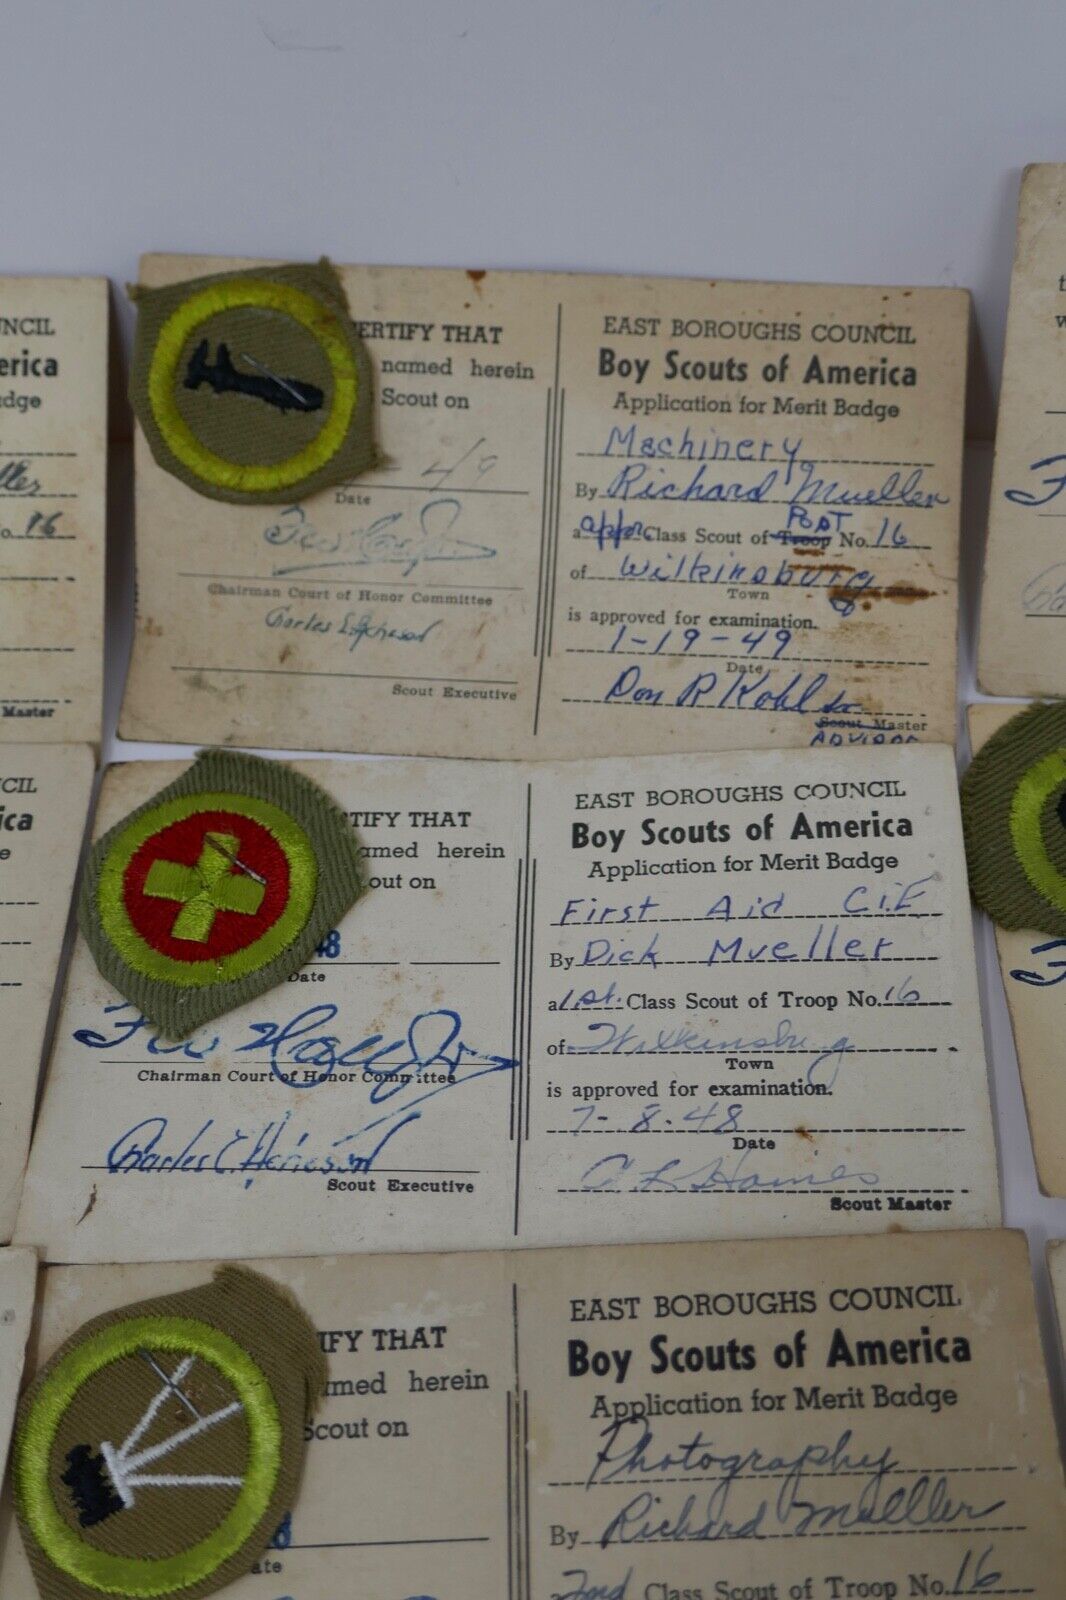 NCIL
erica
adge
eller
o. 16
Master
CERTIFY THAT
named herein
Scout on
- 49
Date
Chairman Court of Honor Committee
Scout Executive
EAST BOROUGHS COUNCIL
Boy Scouts of America
Application for Merit Badge
Machinery
By Richard Mueller
a appr. Class Scout of Troop POST No. 16
of Wilkinsburg
Town
is approved for examination.
1-19-49
Date
Don R Kohl Jr
Scout Master
ADVISOR
CIL
ica
e
TIFY THAT
amed herein
out on
48
Date
Chairman Court of Honor Committee
Scout Executive
EAST BOROUGHS COUNCIL
Boy Scouts of America
Application for Merit Badge
First Aid C.I.E
By Dick Mueller
a 1st. Class Scout of Troop No. 16
of Wilkinsburg
Town
is approved for examination.
7-8-48
Date
C L Haines
Scout Master
IFY THAT
amed herein
Scout on
8
ate
EAST BOROUGHS COUNCIL
Boy Scouts of America
Application for Merit Badge
Photography
By Richard Mueller
a 2nd Class Scout of Troop No. 16